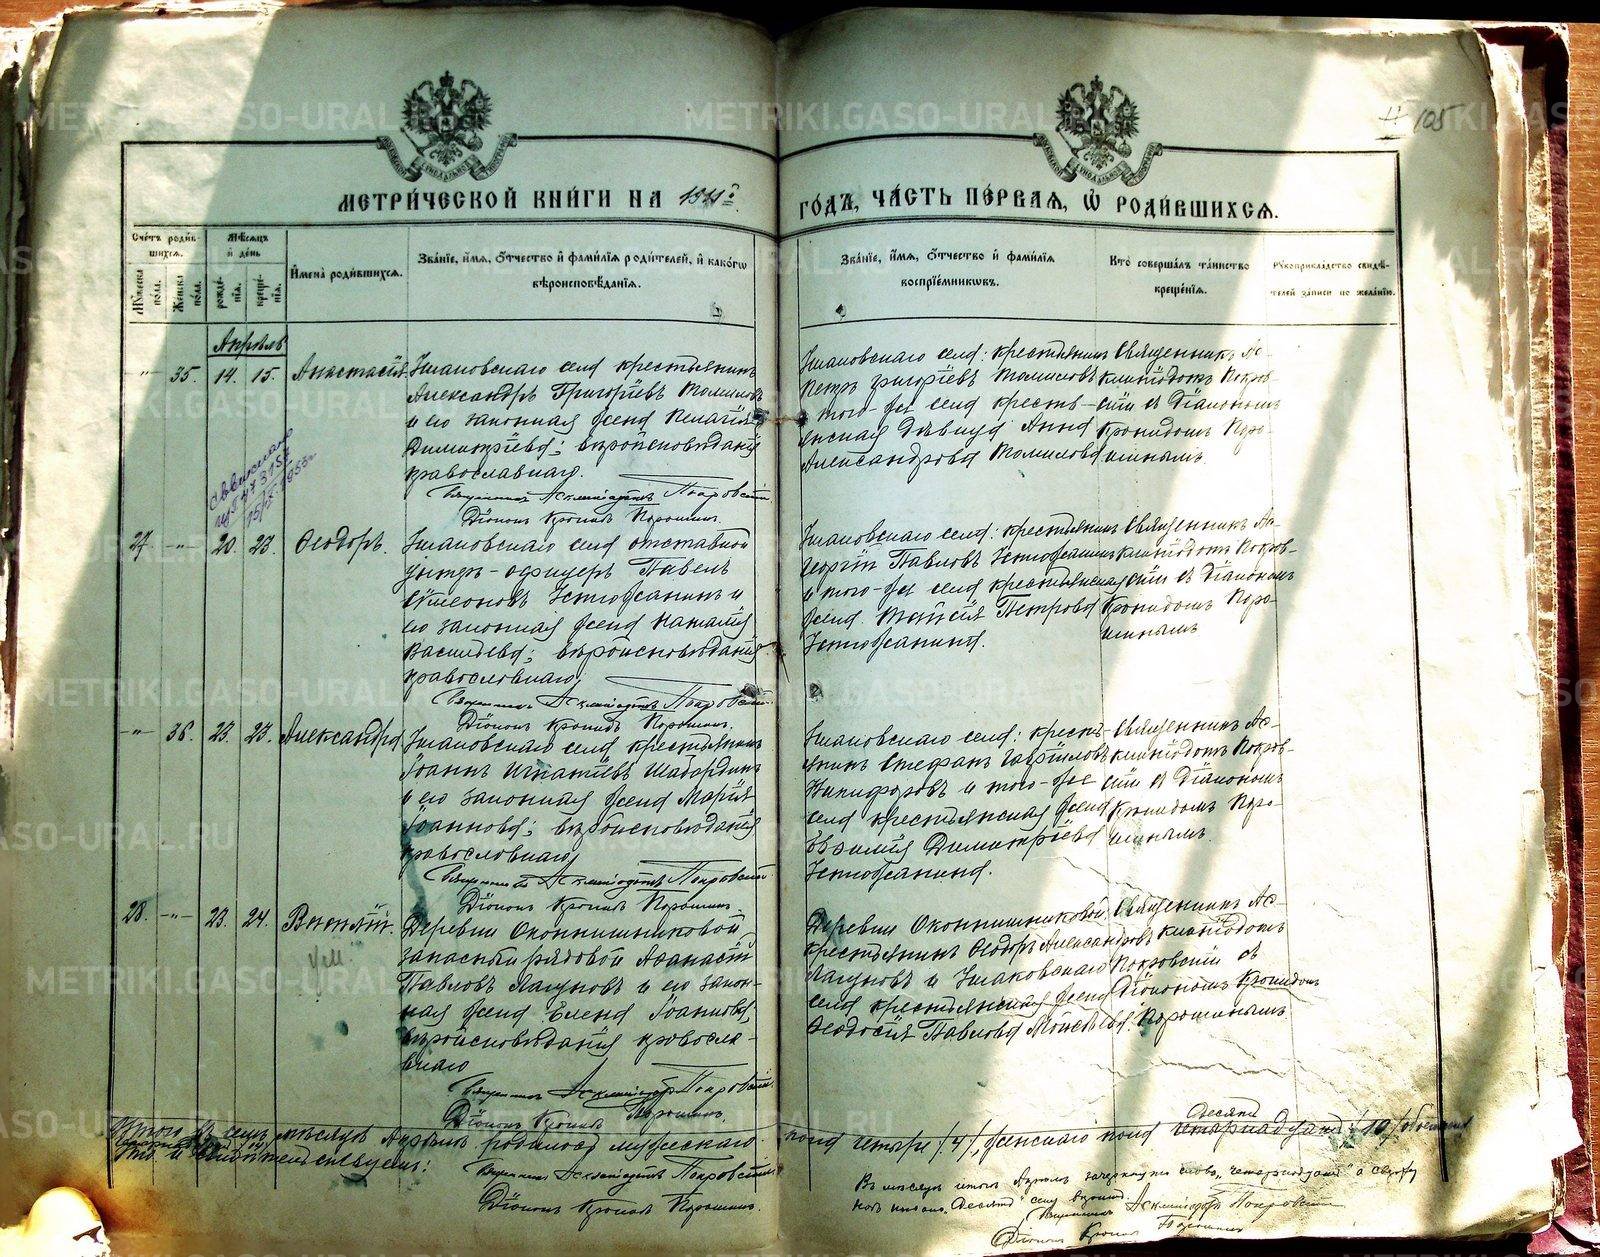 METRIKI.GASO-URAL.RU
105
МЕТРИ́ЧЕСКОЙ КНИ́ГИ НА 1911й
ГО́ДЪ, ЧА́СТЬ ПЕ́РВАЯ, Ѽ РОДИ́ВШИХСЯ.
Сче́тъ роди́в-
шихся.
Мꙋ́жеска по́ла.
Же́нска по́ла.
Мѣ́сяцъ и де́нь
рожде́-нїя.
креще́-нїя.
И҆мена̀ роди́вшихся.
Зва́нїе, и҆́мя, ѻ҆́тчество и҆ фами́лїя роди́телей, и҆ како́гѡ
вѣроисповѣ́данїя.
Зва́нїе, и҆́мя, ѻ҆́тчество и҆ фами́лїя
воспрїе́мникѡвъ.
Кто̀ соверша́лъ та́инство
креще́нїя.
Рꙋкоприкла́дство свидѣ́-
телей за́писи по жела́нїю.
Апрѣль
-"- 35. 14. 15. Анастасія
село крестьянинъ
Александръ Григоріевъ Томиловъ
и его законная жена Пелагія
Димитріева; вѣроисповѣданія
православнаго.
Священникъ Асклипіодотъ Покровскій
Діаконъ Кронидъ Порошинъ.
села: крестьянинъ
Петръ Григоріевъ Томиловъ
и того-же села кресть-
янская дѣвица Анна
Александрова Томилова
Священникъ Ас-
клипіодотъ Покров-
скій съ Діакономъ
Кронидомъ Поро-
шинымъ.
27. -"- 20. 23. Ѳеодоръ.
села отставной
унтеръ-офицеръ Павелъ
Сѵмеоновъ Устюжанинъ и
его законная жена Наталія
Васильева; вѣроисповѣданія
православнаго,
Священникъ Асклипіодотъ Покровскій
Діаконъ Кронидъ Порошинъ.
села: крестьянинъ
Георгій Павловъ Устюжанинъ
и того-же села крестьянская
жена Таисія Петрова
Устюжанина.
Священникъ Ас-
клипіодотъ Покров-
скій съ Діакономъ
Кронидомъ Поро-
шинымъ
-"- 36. 23. 23. Александра
села крестьянинъ
Іоаннъ Игнатіевъ Шабардинъ
и его законная жена Марія
Іоаннова; вѣроисповѣданія
православнаго,
Священникъ Асклипіодотъ Покровскій
Діаконъ Кронидъ Порошинъ.
села: кресть-
янинъ Стефанъ Гавріиловъ
Никифоровъ и того-же
села крестьянская жена
Димитріева
Устюжанина.
Священникъ Ас-
клипіодотъ Покров-
скій съ Діакономъ
Кронидомъ Поро-
шинымъ.
28. -"- 23. 24. Виталій.
Ум.
Деревни Оконишниковой,
запасный рядовой Аѳанасій
Павловъ Лагуновъ и его закон-
ная жена Елена Іоаннова,
вѣроисповѣданія правосла-
внаго
Священникъ Асклипіодотъ Покровскій
Діаконъ Кронидъ Порошинъ.
Деревни Оконишниковой,
крестьянинъ Ѳеодоръ Александровъ
Лагуновъ и
села крестьянская жена
Ѳеодосія Павлова Моисеева.
Священникъ Ас-
клипіодотъ
Покровскій съ
Діакономъ Кронидомъ
Порошинымъ
Итого въ семъ мѣсяцѣ Апрѣлѣ родилось мужескаго
пола четыре /4/, женскаго пола четырнадцать /10/ обоего
Десять
Что и свидѣтельствуемъ:
Священникъ Асклипіодотъ Покровскій
Діаконъ Кронидъ Порошинъ.
Въ мѣсяцѣ итогъ Апрѣль зачеркнуто слово „четырнадцать" а сверху
Десять"
Священникъ Асклипіодотъ Покровскій
Діаконъ Кронидъ Порошинъ